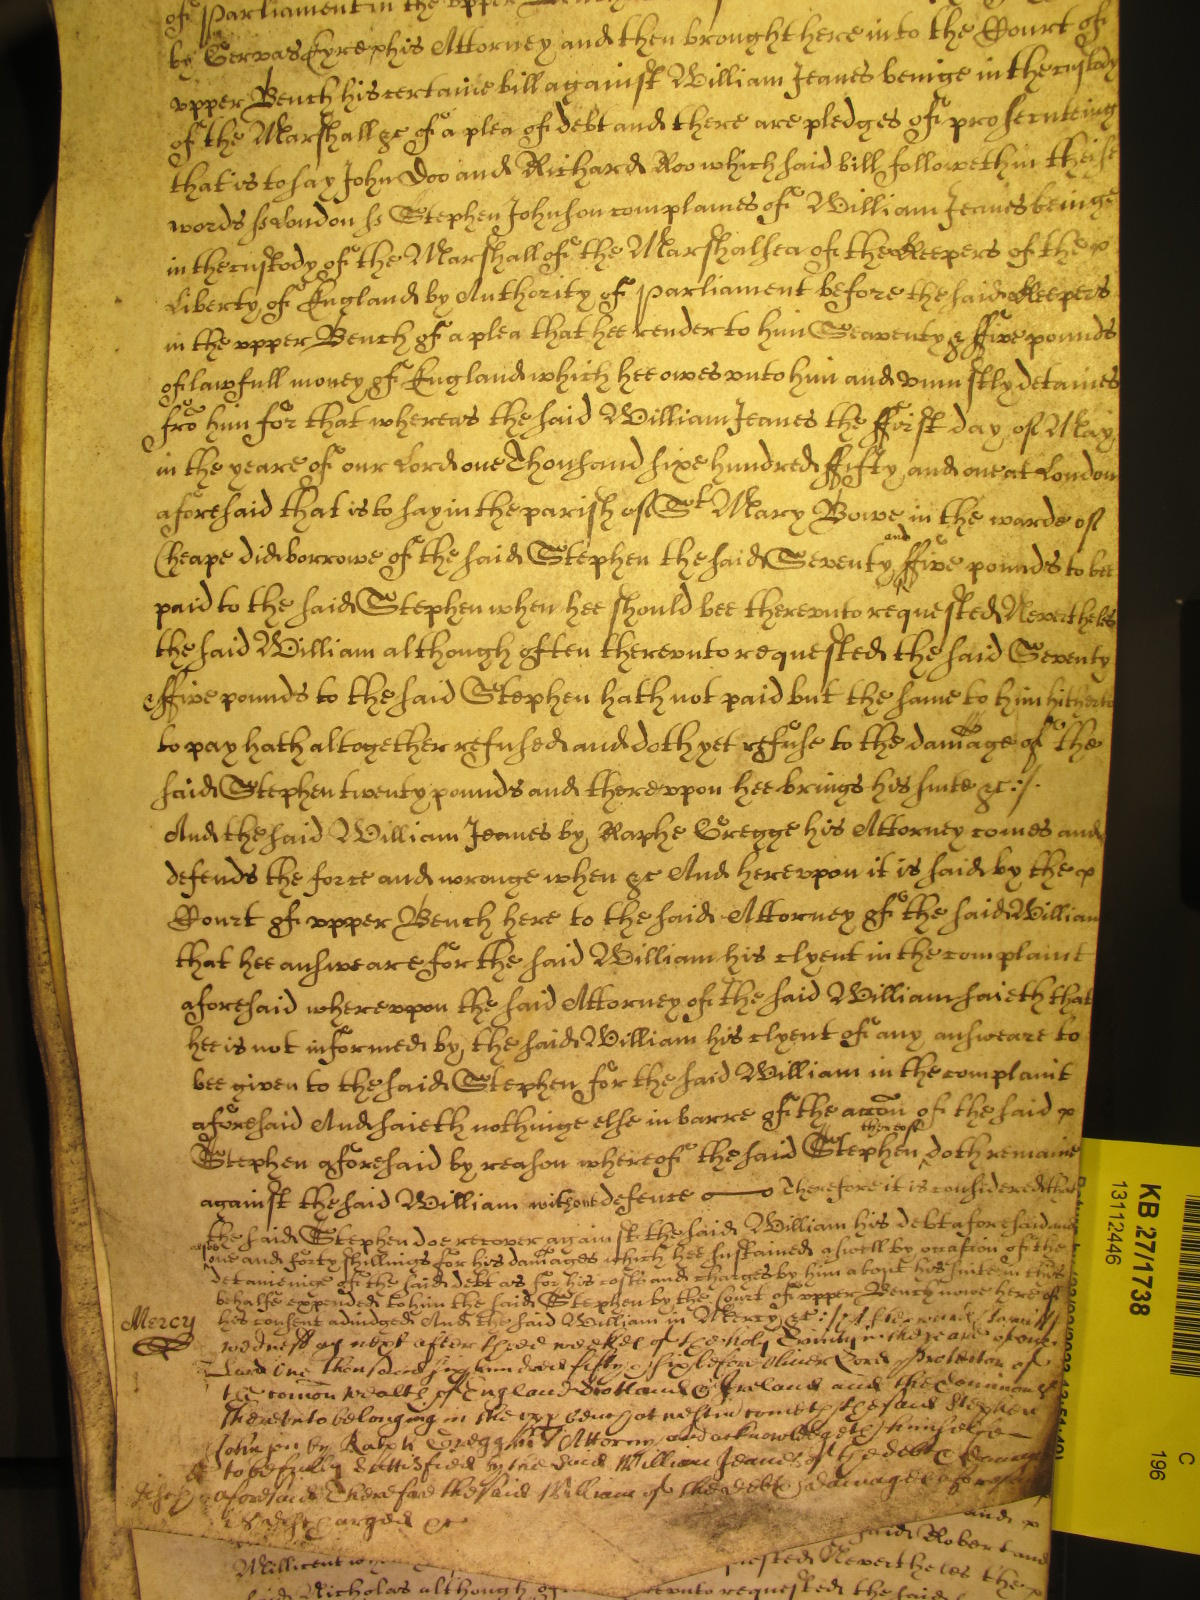 of Parliament in the upper
by Gervas Eyre his Attorney and then brought here into the Court of
upper Bench his certaine bill against William Jeanes beinge in the custody
of the Marshall &c of a plea of debt and there are pledges of prosecuteing
that is to say John Doo and Richard Roo which said bill followeth in theise
words ss London ss Stephen Johnson complaines of William Jeanes beinge
in the custody of the Marshall of the Marshalsea of the Keepers of the
Liberty of England by Authority of Parliament before the said Keepers
in the upper Bench of a plea that hee render to him Seaventy & ffive pounds
of lawfull money of England which hee owes unto him and uniustly detaines
fro him for that whereas the said William Jeanes the ffirst day of May
in the yeare of our Lord one Thousand sixe hundred ffifty and one at London
aforesaid that is to say in the parish of St Mary Bowe in the warde of
Cheape did borrowe of the said Stephen the said Seventy and ffive pounds to bee
paid to the said Stephen when hee should bee thereunto requested Neverthelес
the said William although often thereunto requested the said Seventy
ffive pounds to the said Stephen hath not paid but the same to him hitherto
to pay hath altogether refused and doth yet refuse to the damage of the
said Stephen twenty pounds and thereupon hee brings his suite &c :/.
And the said William Jeanes by Raphe Gregge his Attorney comes and
defends the force and wronge when &c And hereupon it is said by the
Court of upper Bench here to the said Attorney of the said William
that hee answeare for the said William his clyent in the complaint
aforesaid whereupon the said Attorney of the said William saieth that
hee is not informed by the said William his clyent of any answeare to
bee given to the said Stephen for the said William in the complaint
aforesaid And saieth nothinge else in barre of the accon of the said
Stephen aforesaid by reason whereof the said Stephen thereof doth remaine
against the said William without defence Therefore it is considered that
the said Stephen doe recover against the said William his debt aforesaid and
alsoe one and forty shillings for his damages which hee sustained aswell by occasion of the
detaieninge of the said debt as for his costs and charges by him about his suite in this
behalfe expended to him the said Stephen by the Court of upper Bench nowe here of
his consent adiudged And the said William in Mercy &c :/ Afterwards to witt
Mercy
wednesday next after three weekes of the holy Trinity in the yeare of our
Lord One thousand six hundred fifty & six before Oliver Lord Protector of
the comon wealth of England Scotland & Ireland and the Dominions
thereunto belonging in the upp bench at westm cometh the said Stephen
Johnson by Ralph Gregg his Attorny and acknowledgeth himselfe
to be fully sattisfied by the said William Jeanes of the debt & damages
aforesaid Therefore the said William of the debt & damages aforesaid
is discharged &c
and
said Robert and
Millicent
requested Neverthelesse the
said Nicholas although
thereunto requested the said
KB 271/1738
13112446
C
196